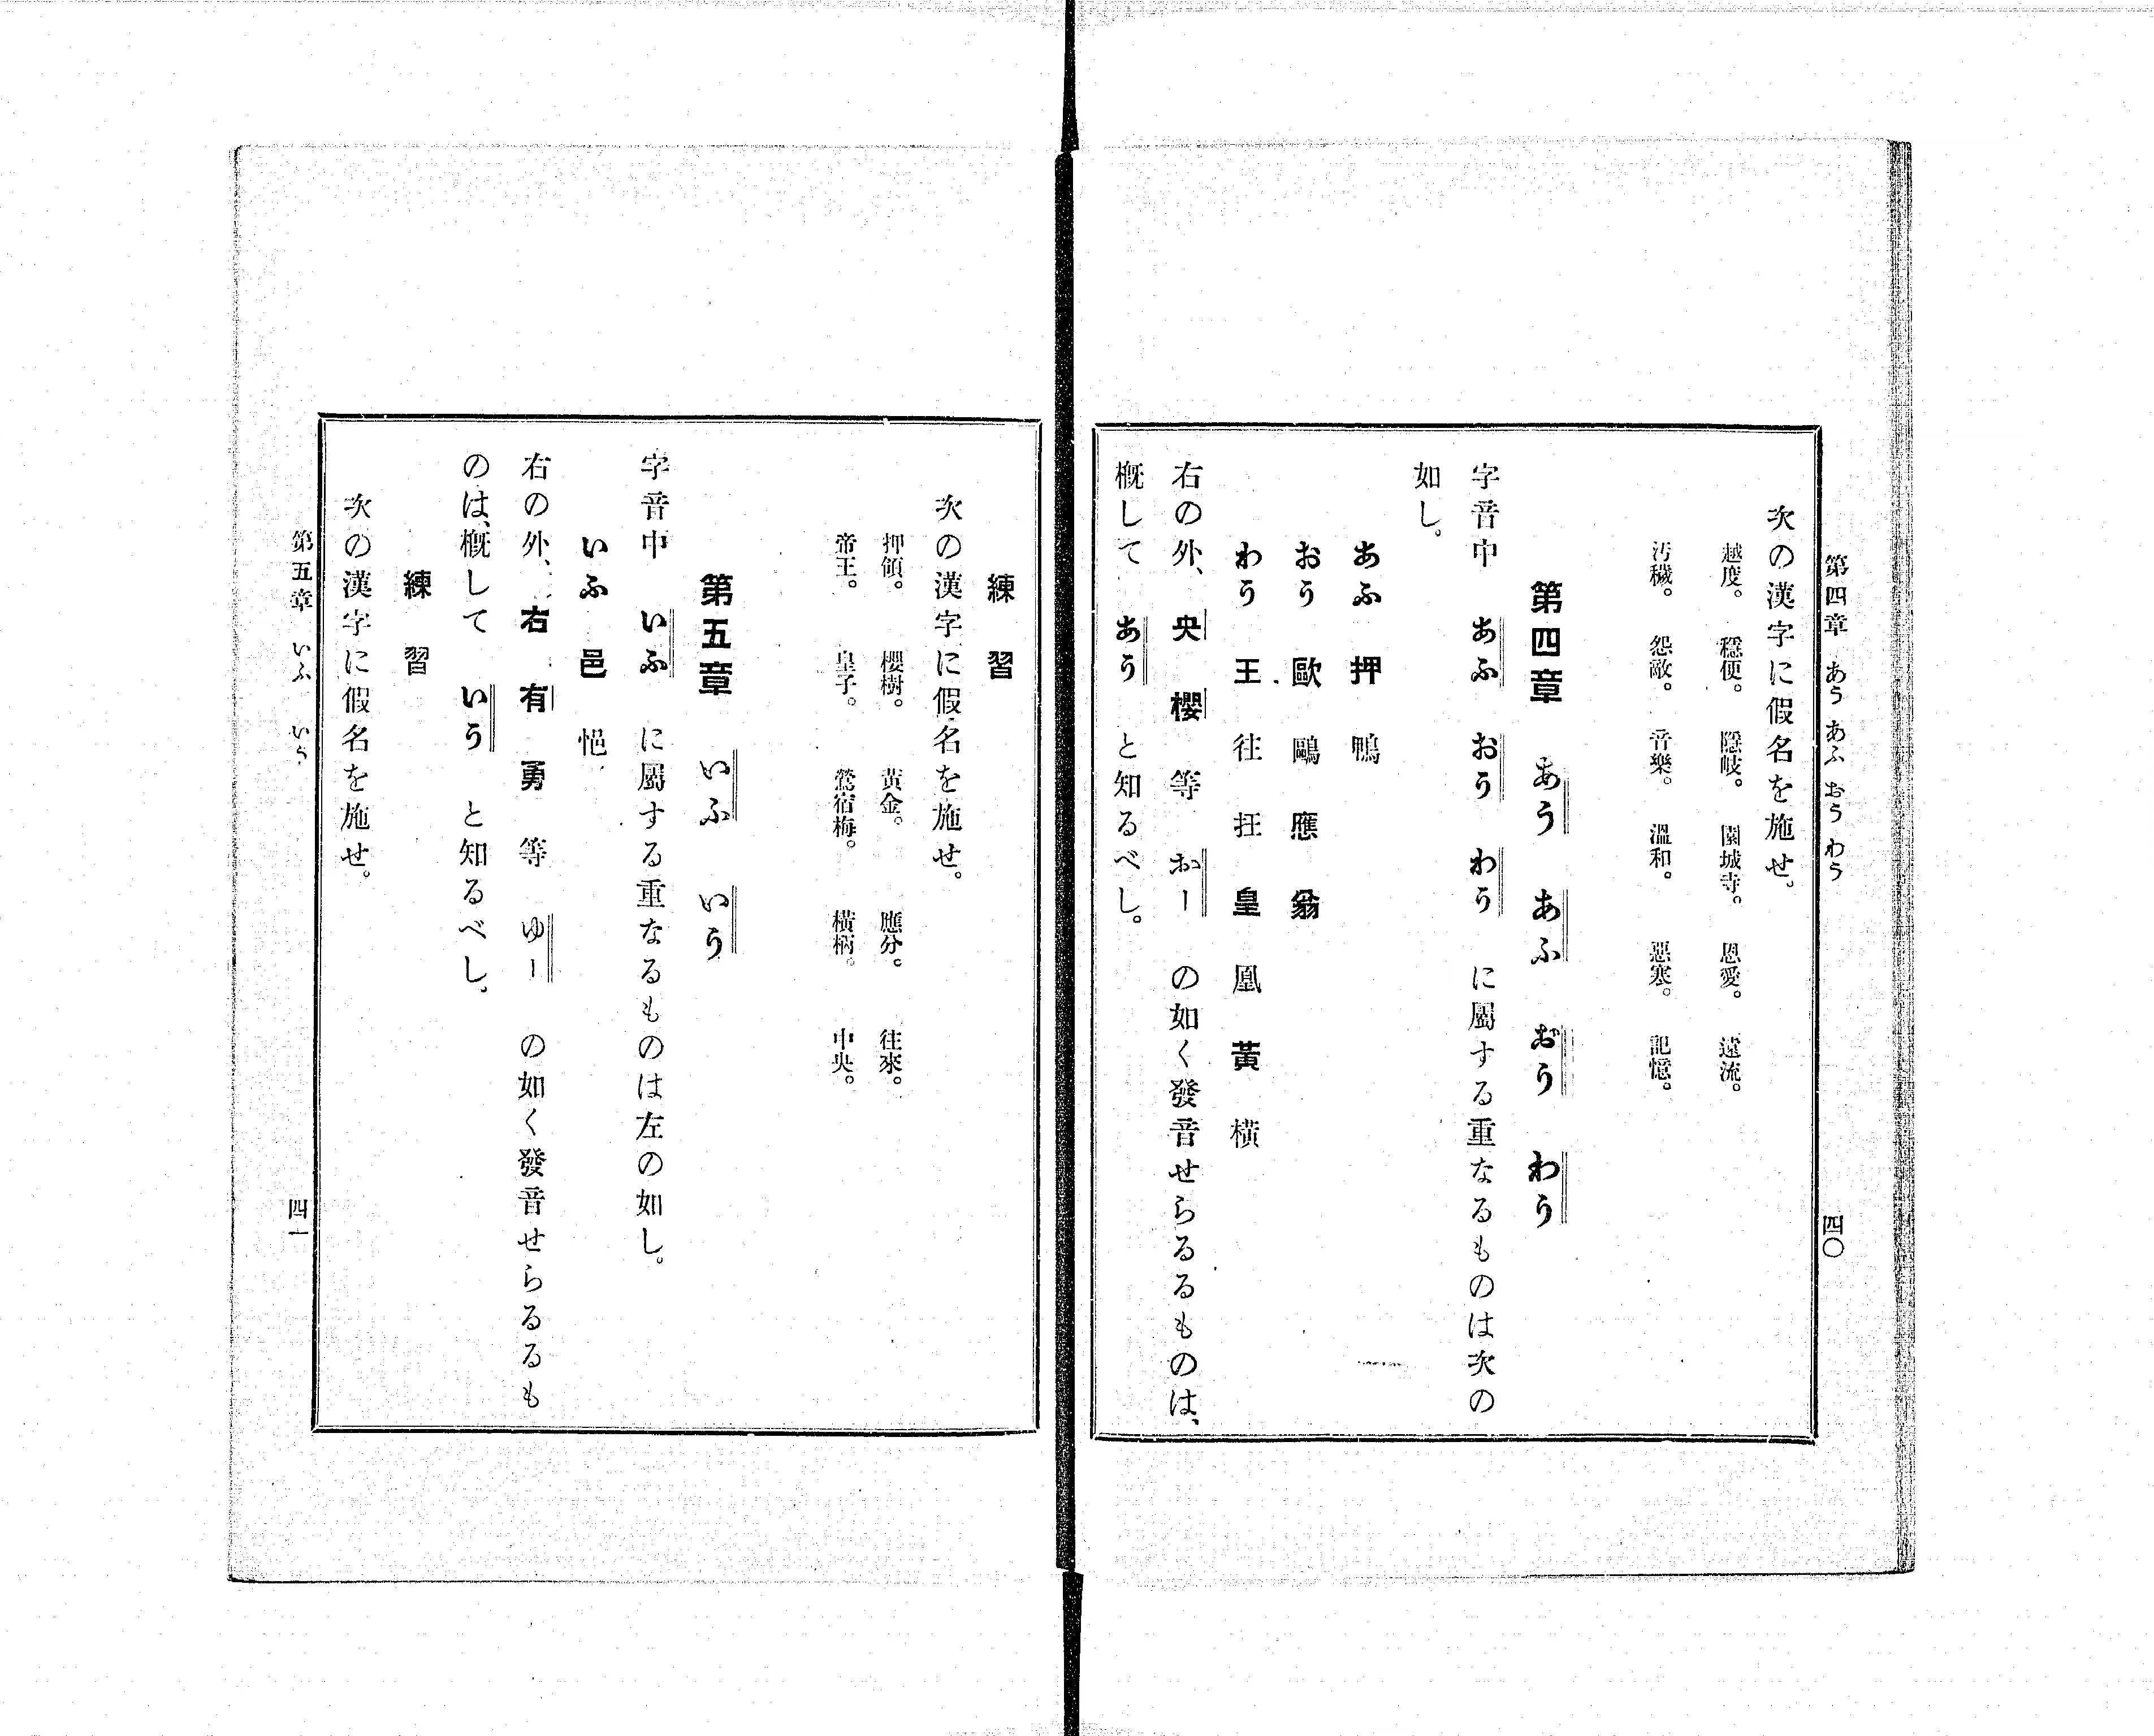 第四章 あう あふ おう わう 四〇
次の漢字に假名を施せ。
越度。 穩便。 隱岐。 園城寺。 恩愛。 遠流。
汚穢。 怨敵。 音樂。 溫和。 惡寒。 記憶。
第四章 あう あふ おう わう
字音中 あふ おう わう に屬する重なるものは次の
如し。
あふ 押 鴨
おう 歐 鷗 應 翁
わう 王 往 抂 皇 凰 黃 橫
右の外、央 櫻 等 おー の如く發音せらるるものは、
槪して あう と知るべし。
練習
次の漢字に假名を施せ。
押領。 櫻樹。 黃金。 應分。 往來。
帝王。 皇子。 鶯宿梅。 橫柄。 中央。
第五章 いふ いう
字音中 いふ に屬する重なるものは左の如し。
いふ 邑 悒
右の外、右 有 勇 等 ゆー の如く發音せらるるも
のは、槪して いう と知るべし。
練習
次の漢字に假名を施せ。
第五章 いふ いう 四一